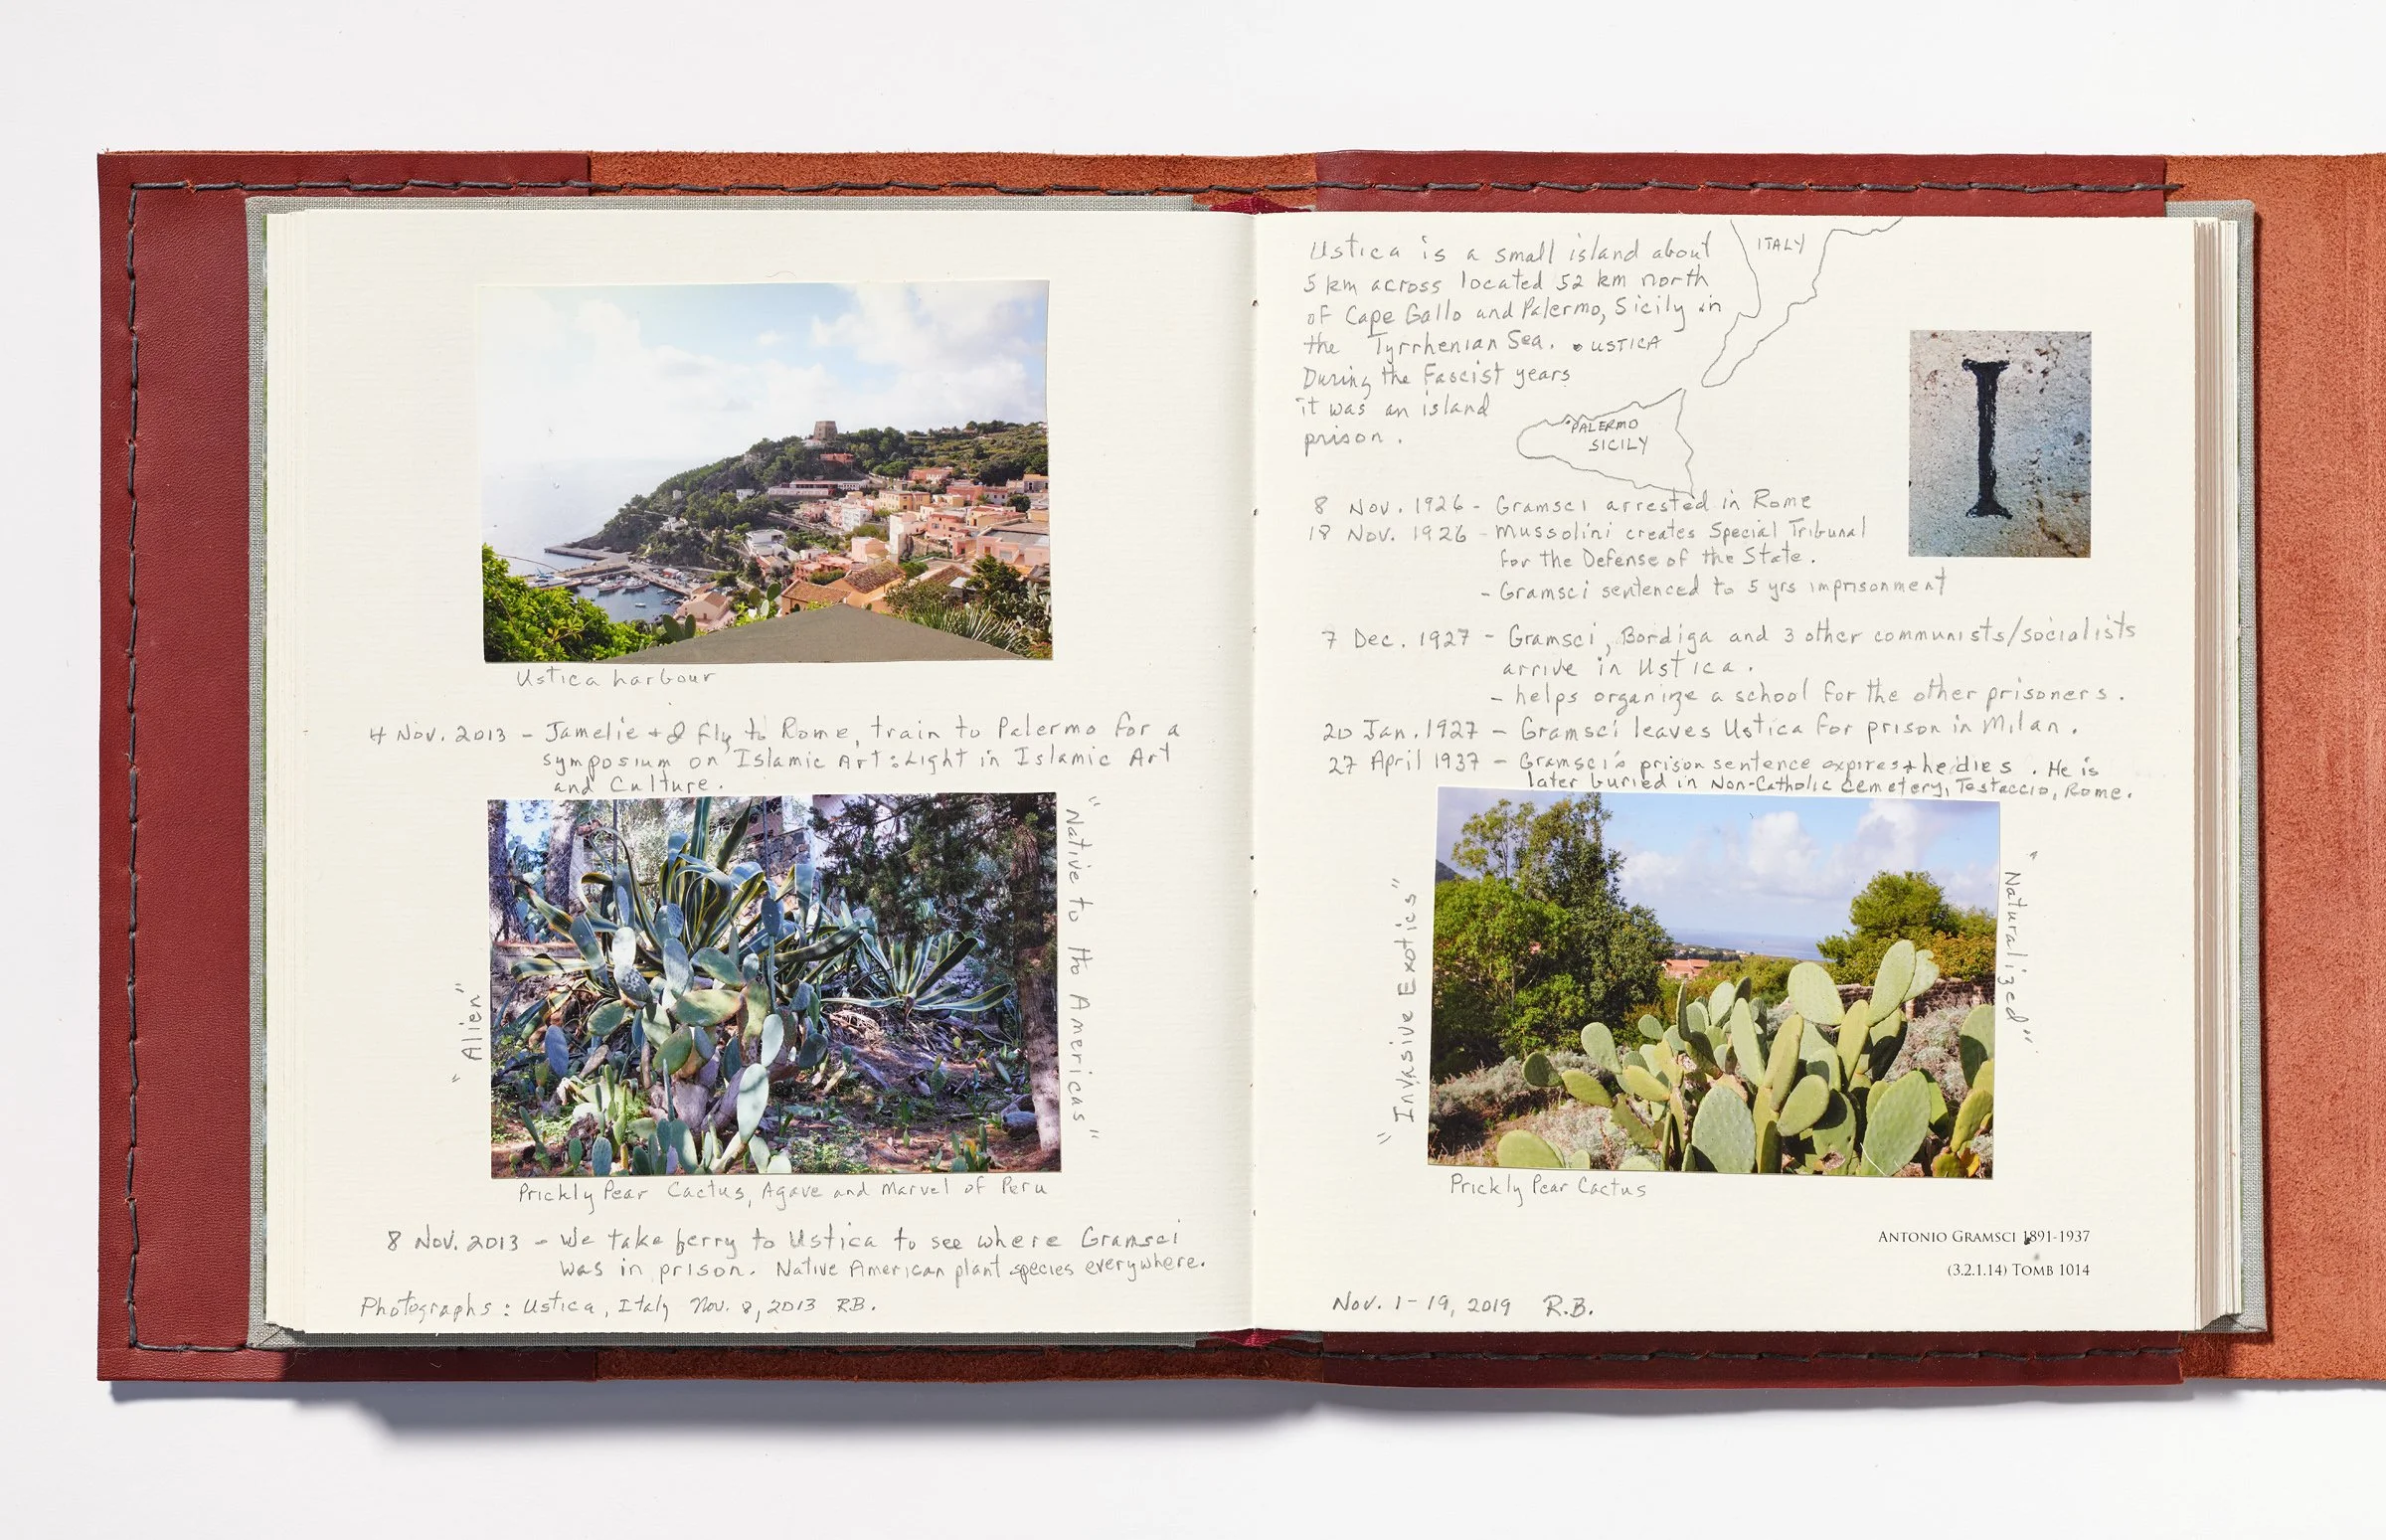 Ustica harbour
4 Nov. 2013 - Jamelie + I fly to Rome, train to Palermo for a
symposium on Islamic Art: Light in Islamic Art
and Culture.
"Alien"
"Native to the Americas"
Prickly Pear Cactus, Agave and Marvel of Peru
8 Nov. 2013 - We take ferry to Ustica to see where Gramsci
was in prison. Native American plant species everywhere.
Photographs: Ustica, Italy Nov. 8, 2013 R.B.
Ustica is a small island about
5 km across located 52 km north
of Cape Gallo and Palermo, Sicily in
the Tyrrhenian Sea.
During the Fascist years
it was an island
prison.
ITALY
USTICA
PALERMO
SICILY
I
8 Nov. 1926 - Gramsci arrested in Rome
18 Nov. 1926 - Mussolini creates Special Tribunal
for the Defense of the State.
- Gramsci sentenced to 5 yrs imprisonment
7 Dec. 1927 - Gramsci, Bordiga and 3 other communists/socialists
arrive in Ustica.
- helps organize a school for the other prisoners.
20 Jan. 1927 - Gramsci leaves Ustica for prison in Milan.
27 April 1937 - Gramsci's prison sentence expires + he dies. He is
later buried in Non-Catholic Cemetery, Testaccio, Rome.
"Invasive Exotics"
"Naturalized"
Prickly Pear Cactus
ANTONIO GRAMSCI 1891-1937
(3.2.1.14) TOMB 1014
Nov. 1-19, 2019 R.B.